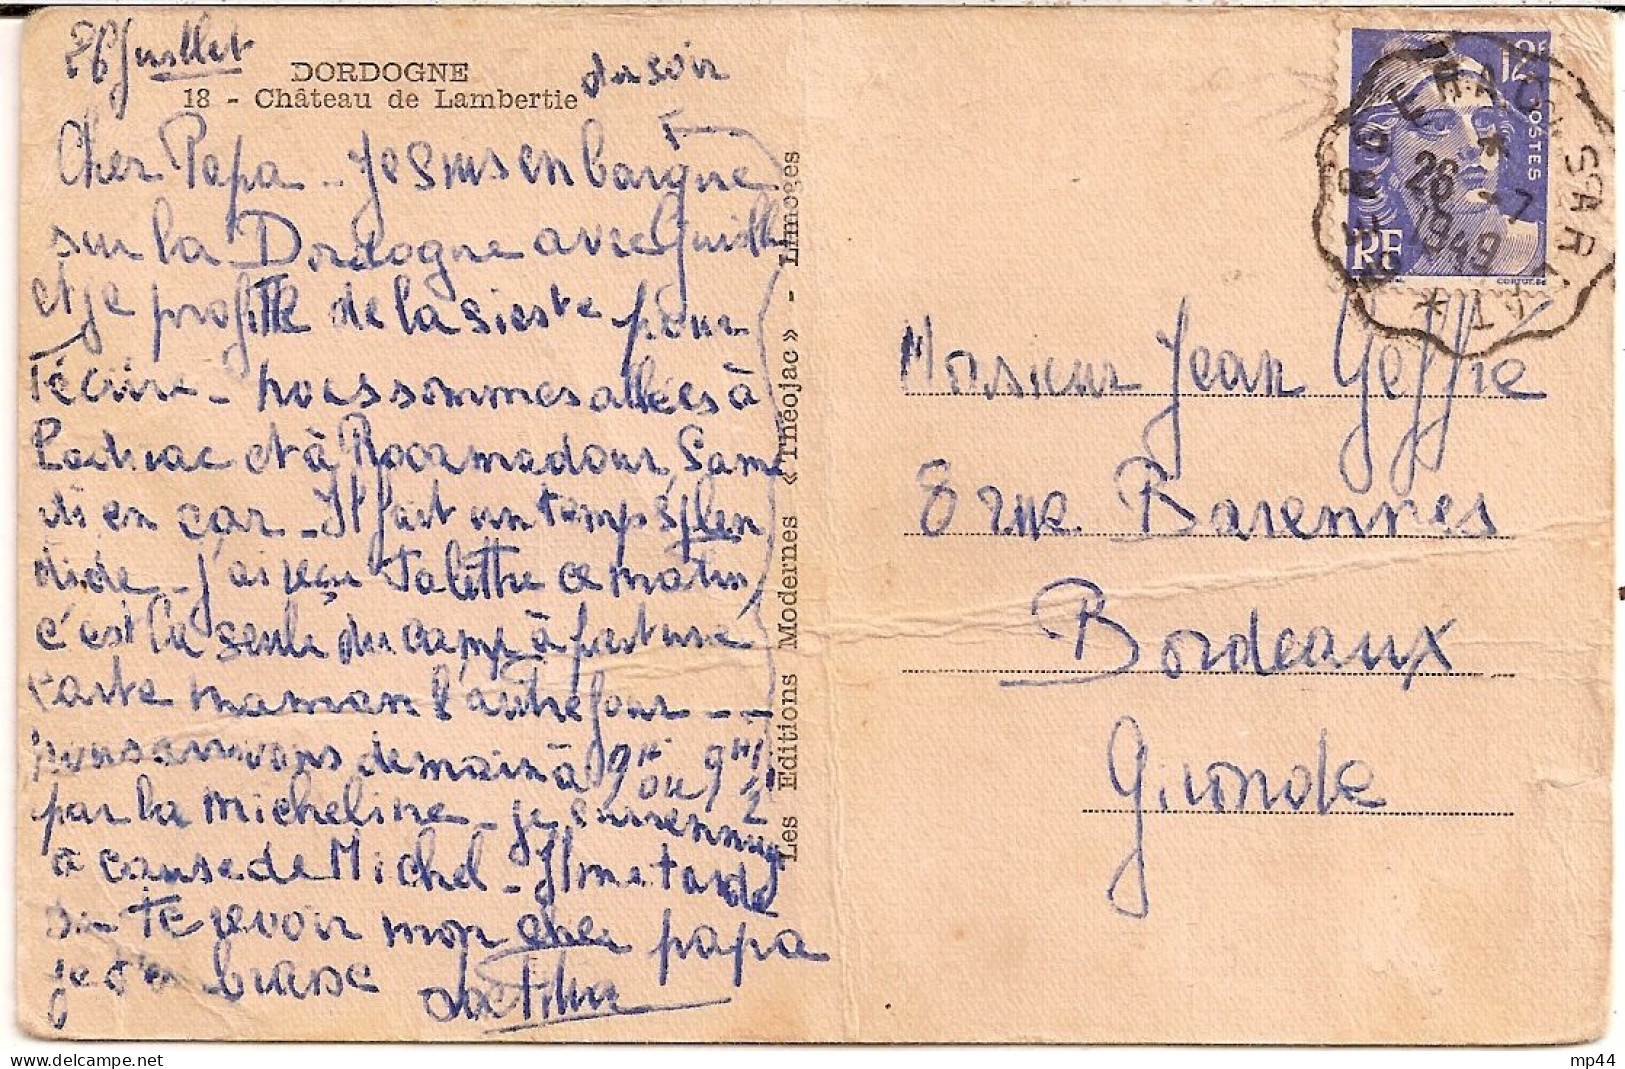 26 Juillet
DORDOGNE
18 - Château de Lambertie
du soir
Cher Papa - Je suis en barque
sur la Dordogne avec
et je profite de la sieste pour
t'écrire - nous sommes allées à
Padirac et à Rocamadour, Same
di en car - Il fait un temps splen
dide - j'ai reçu ta lettre ce matin,
c'est la seule du camp à part une
carte maman l'autre jour - -
nous arrivons demain à 9H ou 9H 1/2
par la micheline - je
à cause de Michel - Il me tarde
de te revoir mon cher papa
je t'embrasse
Les Editions Modernes « Théojac » - Limoges
12F
POSTES
RF
BERGERAC * SARLAT *
26 -7
1949
Monsieur Jean Geffré
8 rue Barennes
Bordeaux
Gironde
mp44